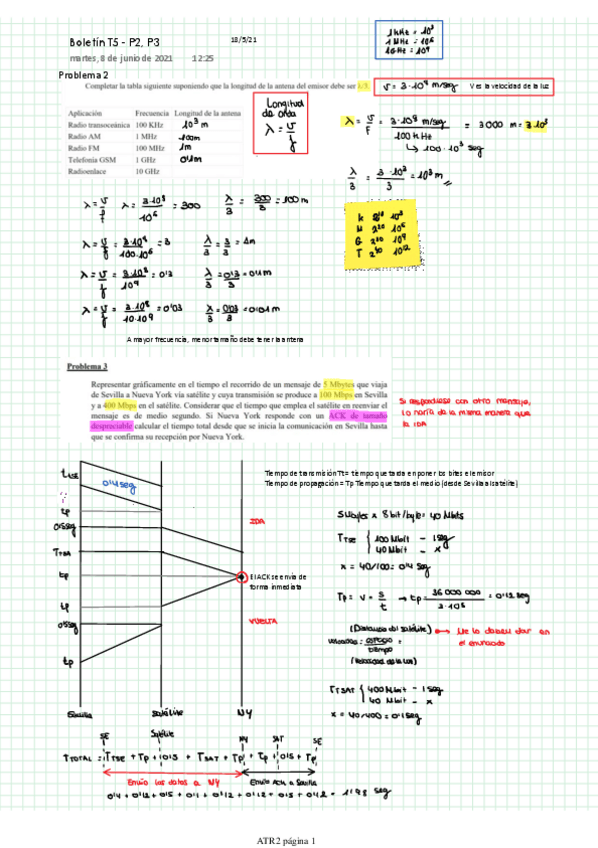 1 kHz = 10³
1 MHz = 10⁶
1 GHz = 10⁹
Boletín T5 - P2, P3
18/5/21
martes, 8 de junio de 2021 12:25
Problema 2
Completar la tabla siguiente suponiendo que la longitud de la antena del emisor debe ser λ/3.
v = 3·10⁸ m/seg
V es la velocidad de la luz
Aplicación Frecuencia Longitud de la antena
Radio transoceánica 100 KHz 10³ m
Radio AM 1 MHz 100m
Radio FM 100 MHz 1m
Telefonía GSM 1 GHz 0'1m
Radioenlace 10 GHz
Longitud de onda
λ = v/f
λ = v/F = 3·10⁸ m/seg / 100 kHz = 3000 m = 3·10³
↳ 100·10³ seg
λ/3 = 3·10³/3 = 10³ m
λ = v/f λ = 3·10⁸/10⁶ = 300 λ/3 = 300/3 = 100 m
λ = v/f = 3·10⁸/100·10⁶ = 3 λ/3 = 3/3 = 1m
λ = v/f = 3·10⁸/10⁹ = 0'3 λ/3 = 0'3/3 = 0'1m
λ = v/f = 3·10⁸/10·10⁹ = 0'03 λ/3 = 0'03/3 = 0'01m
K 2¹⁰ 10³
M 2²⁰ 10⁶
G 2³⁰ 10⁹
T 2⁴⁰ 10¹²
A mayor frecuencia, menor tamaño debe tener la antena
Problema 3
Representar gráficamente en el tiempo el recorrido de un mensaje de 5 Mbytes que viaja
de Sevilla a Nueva York vía satélite y cuya transmisión se produce a 100 Mbps en Sevilla
y a 400 Mbps en el satélite. Considerar que el tiempo que emplea el satélite en reenviar el
mensaje es de medio segundo. Si Nueva York responde con un ACK de tamaño
despreciable calcular el tiempo total desde que se inicia la comunicación en Sevilla hasta
que se confirma su recepción por Nueva York.
Si respondiese con otro mensaje,
lo haría de la misma manera que
la IDA
Tiempo de transmisión Tt = tiempo que tarda en poner los bites el emisor
Tiempo de propagación = Tp Tiempo que tarda el medio (desde Sevilla al satélite)
tTSE
0'4 seg
tp
0'5seg
IDA
TTSA
tp
El ACK se envía de
forma inmediata
tp
0'5seg
VUELTA
tp
Sevilla Satélite NY
5Mbytes x 8 bit/byte = 40 Mbits
TTSE { 100 Mbit - 1seg
40 Mbit - x
x = 40/100 = 0'4 seg
Tp = v = s/t → tp = 36 000 000 / 3·10⁸ = 0'12 seg
(Distancia del satélite) Me lo deben dar en
el enunciado
velocidad = espacio/tiempo =
(Velocidad de la luz)
TTSAT { 400 Mbit - 1 seg
40 Mbit - x
x = 40/400 = 0'1 seg
SE Satélite NY SAT SE
TTOTAL = TTSE + Tp + 0'5 + TSAT + Tp + Tp + 0'5 + Tp
Envío los datos a NY Envío ACK a Sevilla
0'4 + 0'12 + 0'5 + 0'1 + 0'12 + 0'12 + 0'5 + 0'12 = 1'98 seg
ATR2 página 1